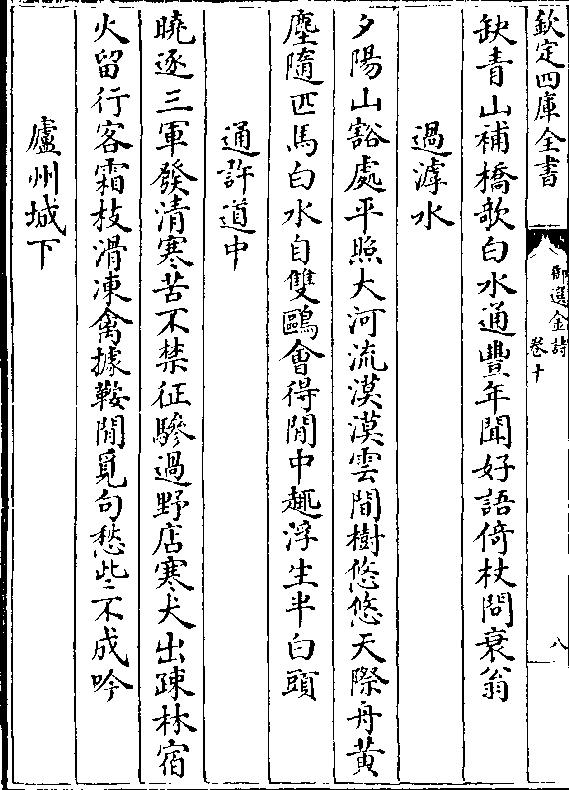 欽定四庫全書
御選金詩
卷十
八
缺青山補橋欹白水通豐年聞好語倚杖問衰翁
過滹水
夕陽山豁處平照大河流漠漠雲間樹悠悠天際舟黄
塵隨匹馬白水自雙鷗會得閒中趣浮生半白頭
通許道中
曉逐三軍發清寒苦不禁征驂過野店寒犬出疎林宿
火留行客霜枝滑凍禽據鞍閒覓句愁些不成吟
廬州城下